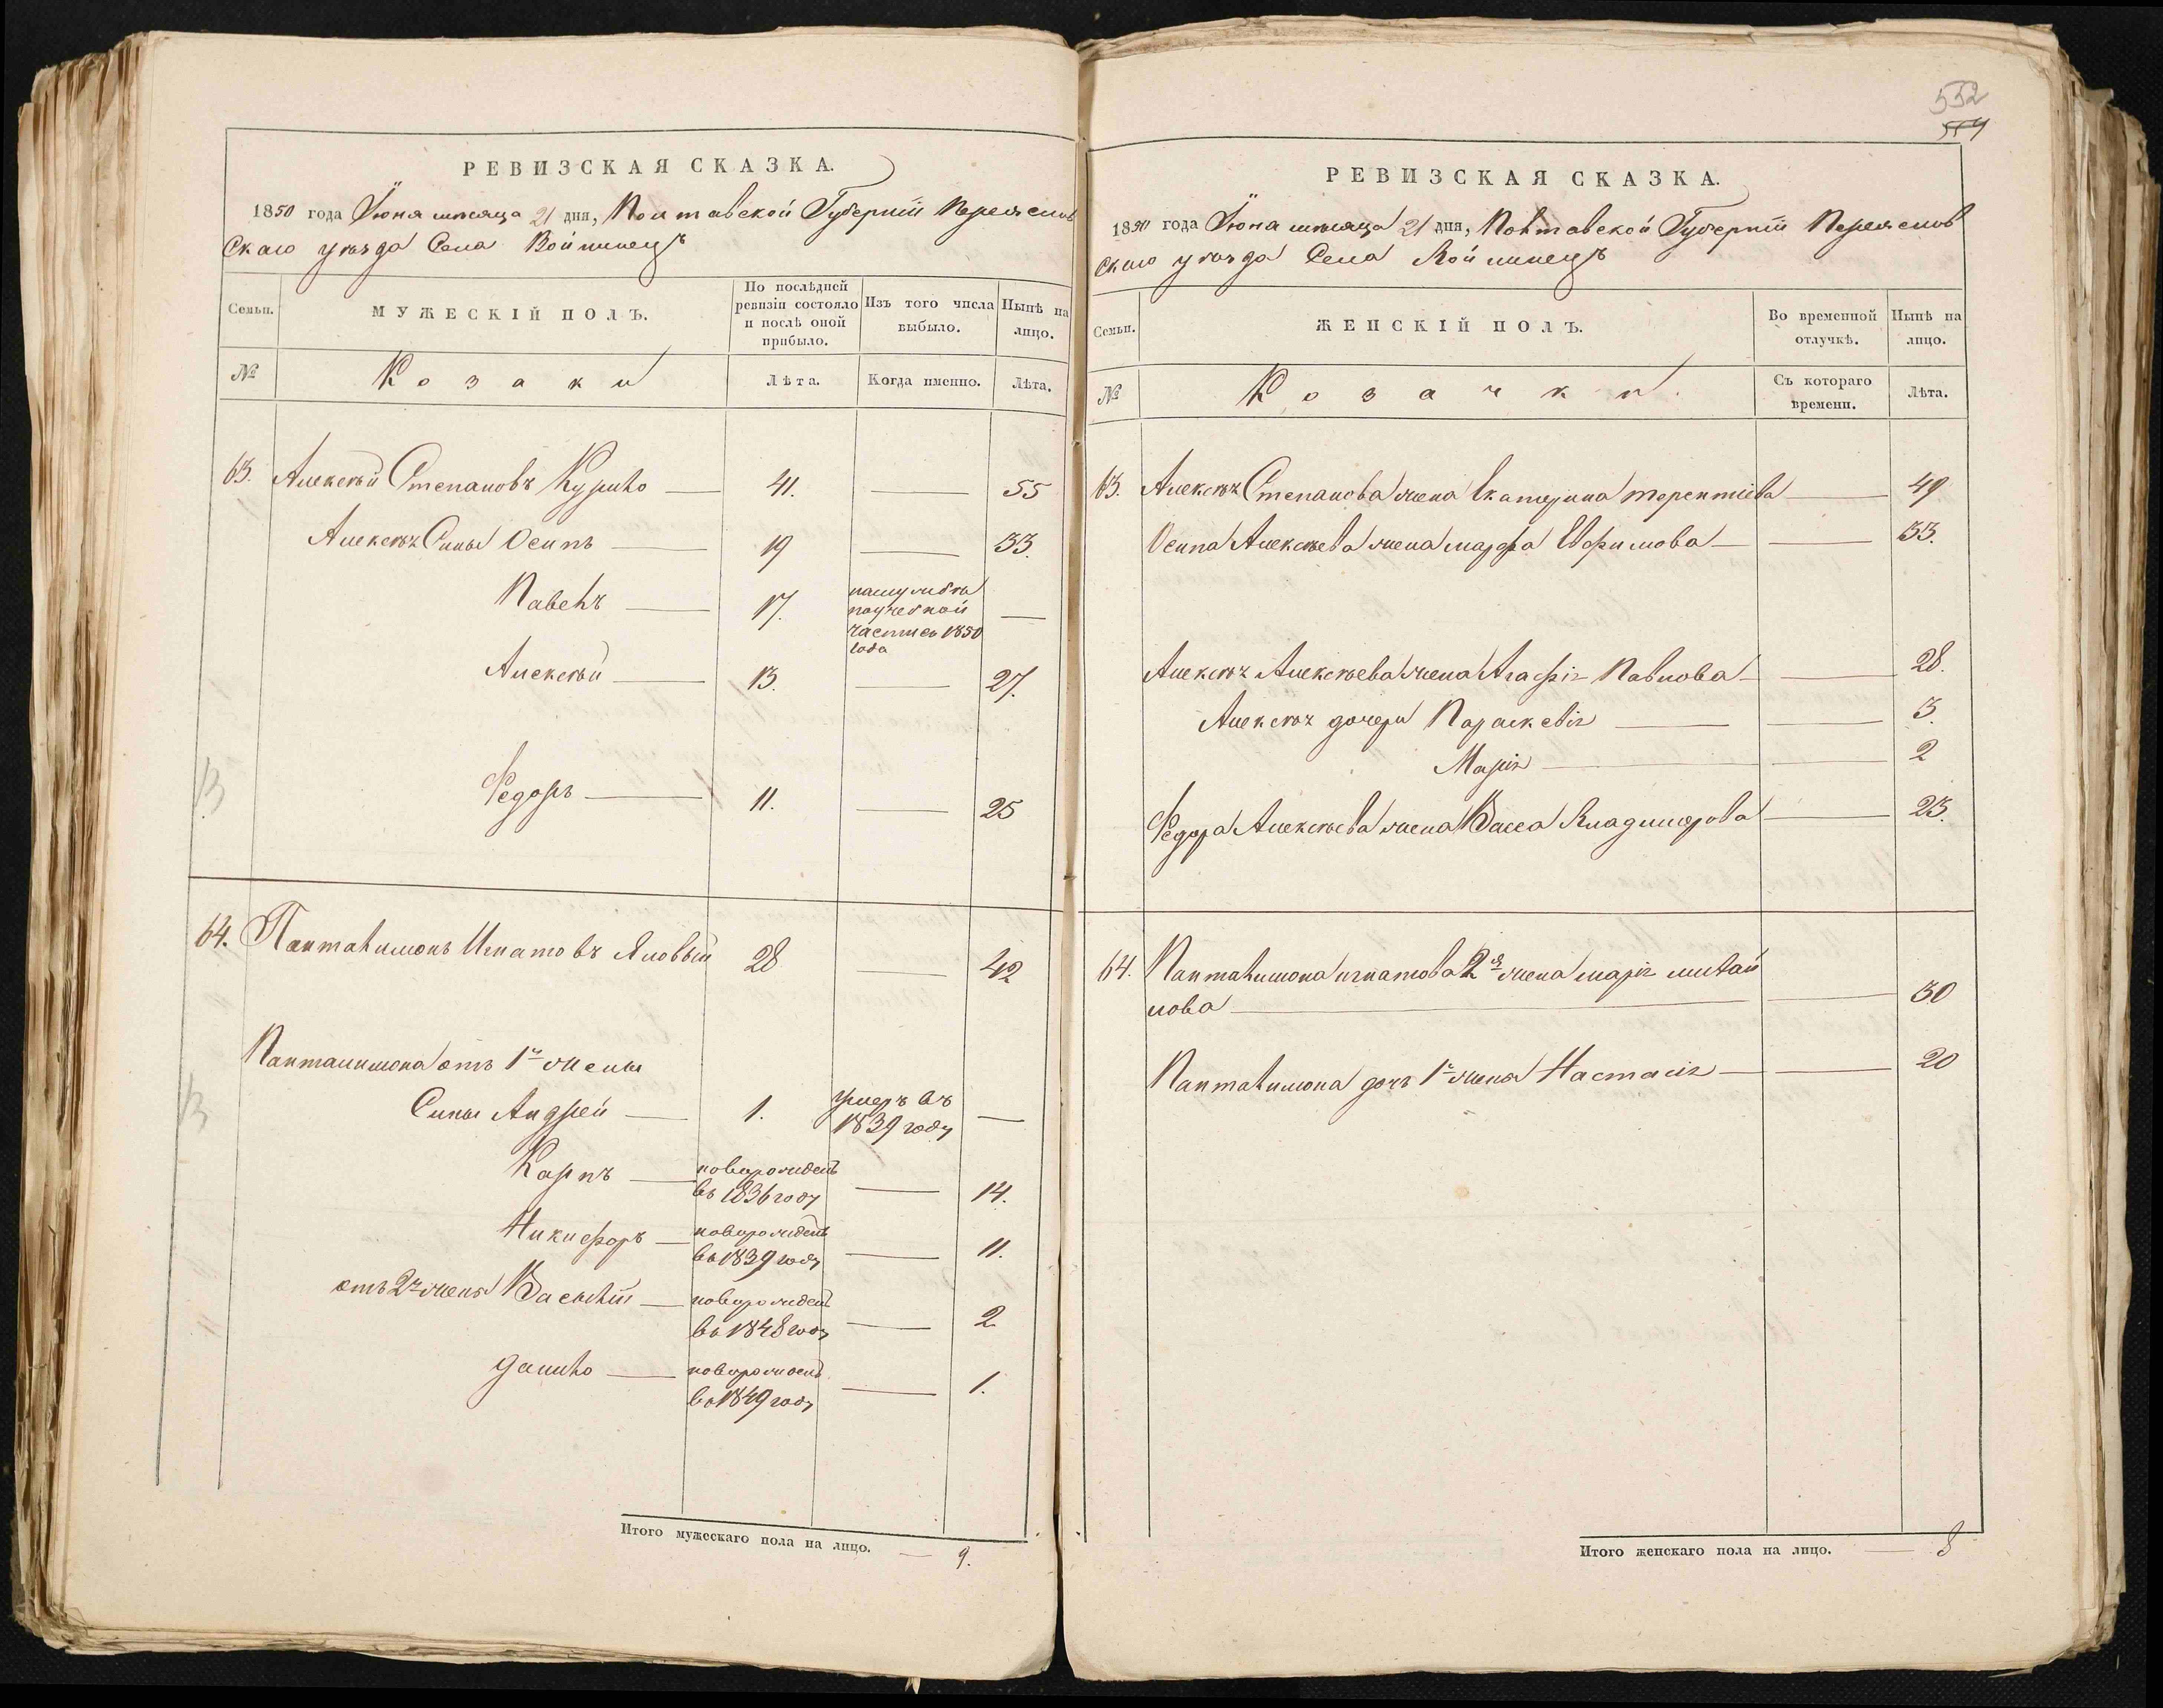 РЕВИЗСКАЯ СКАЗКА.
1850 года Іюня месяца 21 дня, Полтавской Губерніи Переяслов
скаго уезда Села Войтинецъ
Семьи.
МУЖЕСКІЙ ПОЛЪ.
По послѣдней ревизіи состояло и послѣ оной прибыло.
Изъ того числа выбыло.
Нынѣ на лицо.
№
Козаки
Лѣта.
Когда именно.
Лѣта.
63. Алексѣй Степановъ Курило — 41. — 55
Алексѣя Сины Осипъ — 19 — 33.
Павелъ — 17. —
части въ 1850
года
Алексѣй — 13. — 27.
Федоръ — 11. — 25
64. Панталимонъ Игнатовъ Яловый 28 — 42
Панталимона отъ 1й жены
Сины Андрей — 1. умеръ въ —
1839 году
Карпъ — новорожденъ — 14.
въ 1836 году
Никифоръ — новорожденъ — 11.
въ 1839 году
отъ 2й жены Василій — новорожденъ — 2
въ 1848 году
Данило — новорожденъ — 1.
въ 1849 году
Итого мужескаго пола на лицо. — 9.
552
554
РЕВИЗСКАЯ СКАЗКА.
1850 года Іюня месяца 21 дня, Полтавской Губерніи Переяслов
скаго уезда Села Войтинецъ
Семьи.
ЖЕНСКІЙ ПОЛЪ.
Во временной отлучкѣ.
Нынѣ на лицо.
№
Козачки
Съ котораго времени.
Лѣта.
63. Алексѣя Степанова жена Екатерина Терентіева — 49
Осипа Алексѣева жена Марфа Ефимова — 33.
Алексѣя Алексѣева жена Агафія Павлова — 28.
Алексѣя дочери Параскевія — 3.
Марія — 2
Федора Алексѣева жена Васса Владимерова — 23.
64. Панталимона Игнатова 2я жена Марія Михай
лова — 30
Панталимона дочь 1й жены Настасія — 20
Итого женскаго пола на лицо. — 8